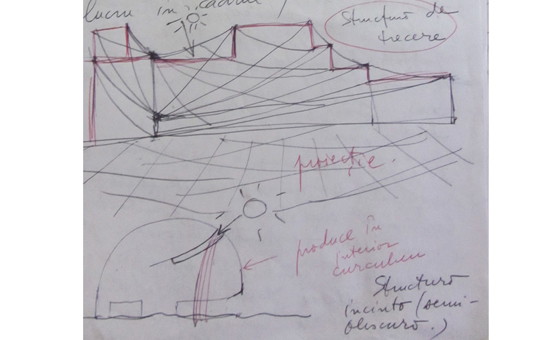 lucru în cadrul
Structură de
trecere
proiecție.
produce în
interior
curcubeu
Structură
incintă (semi-
obscură.)